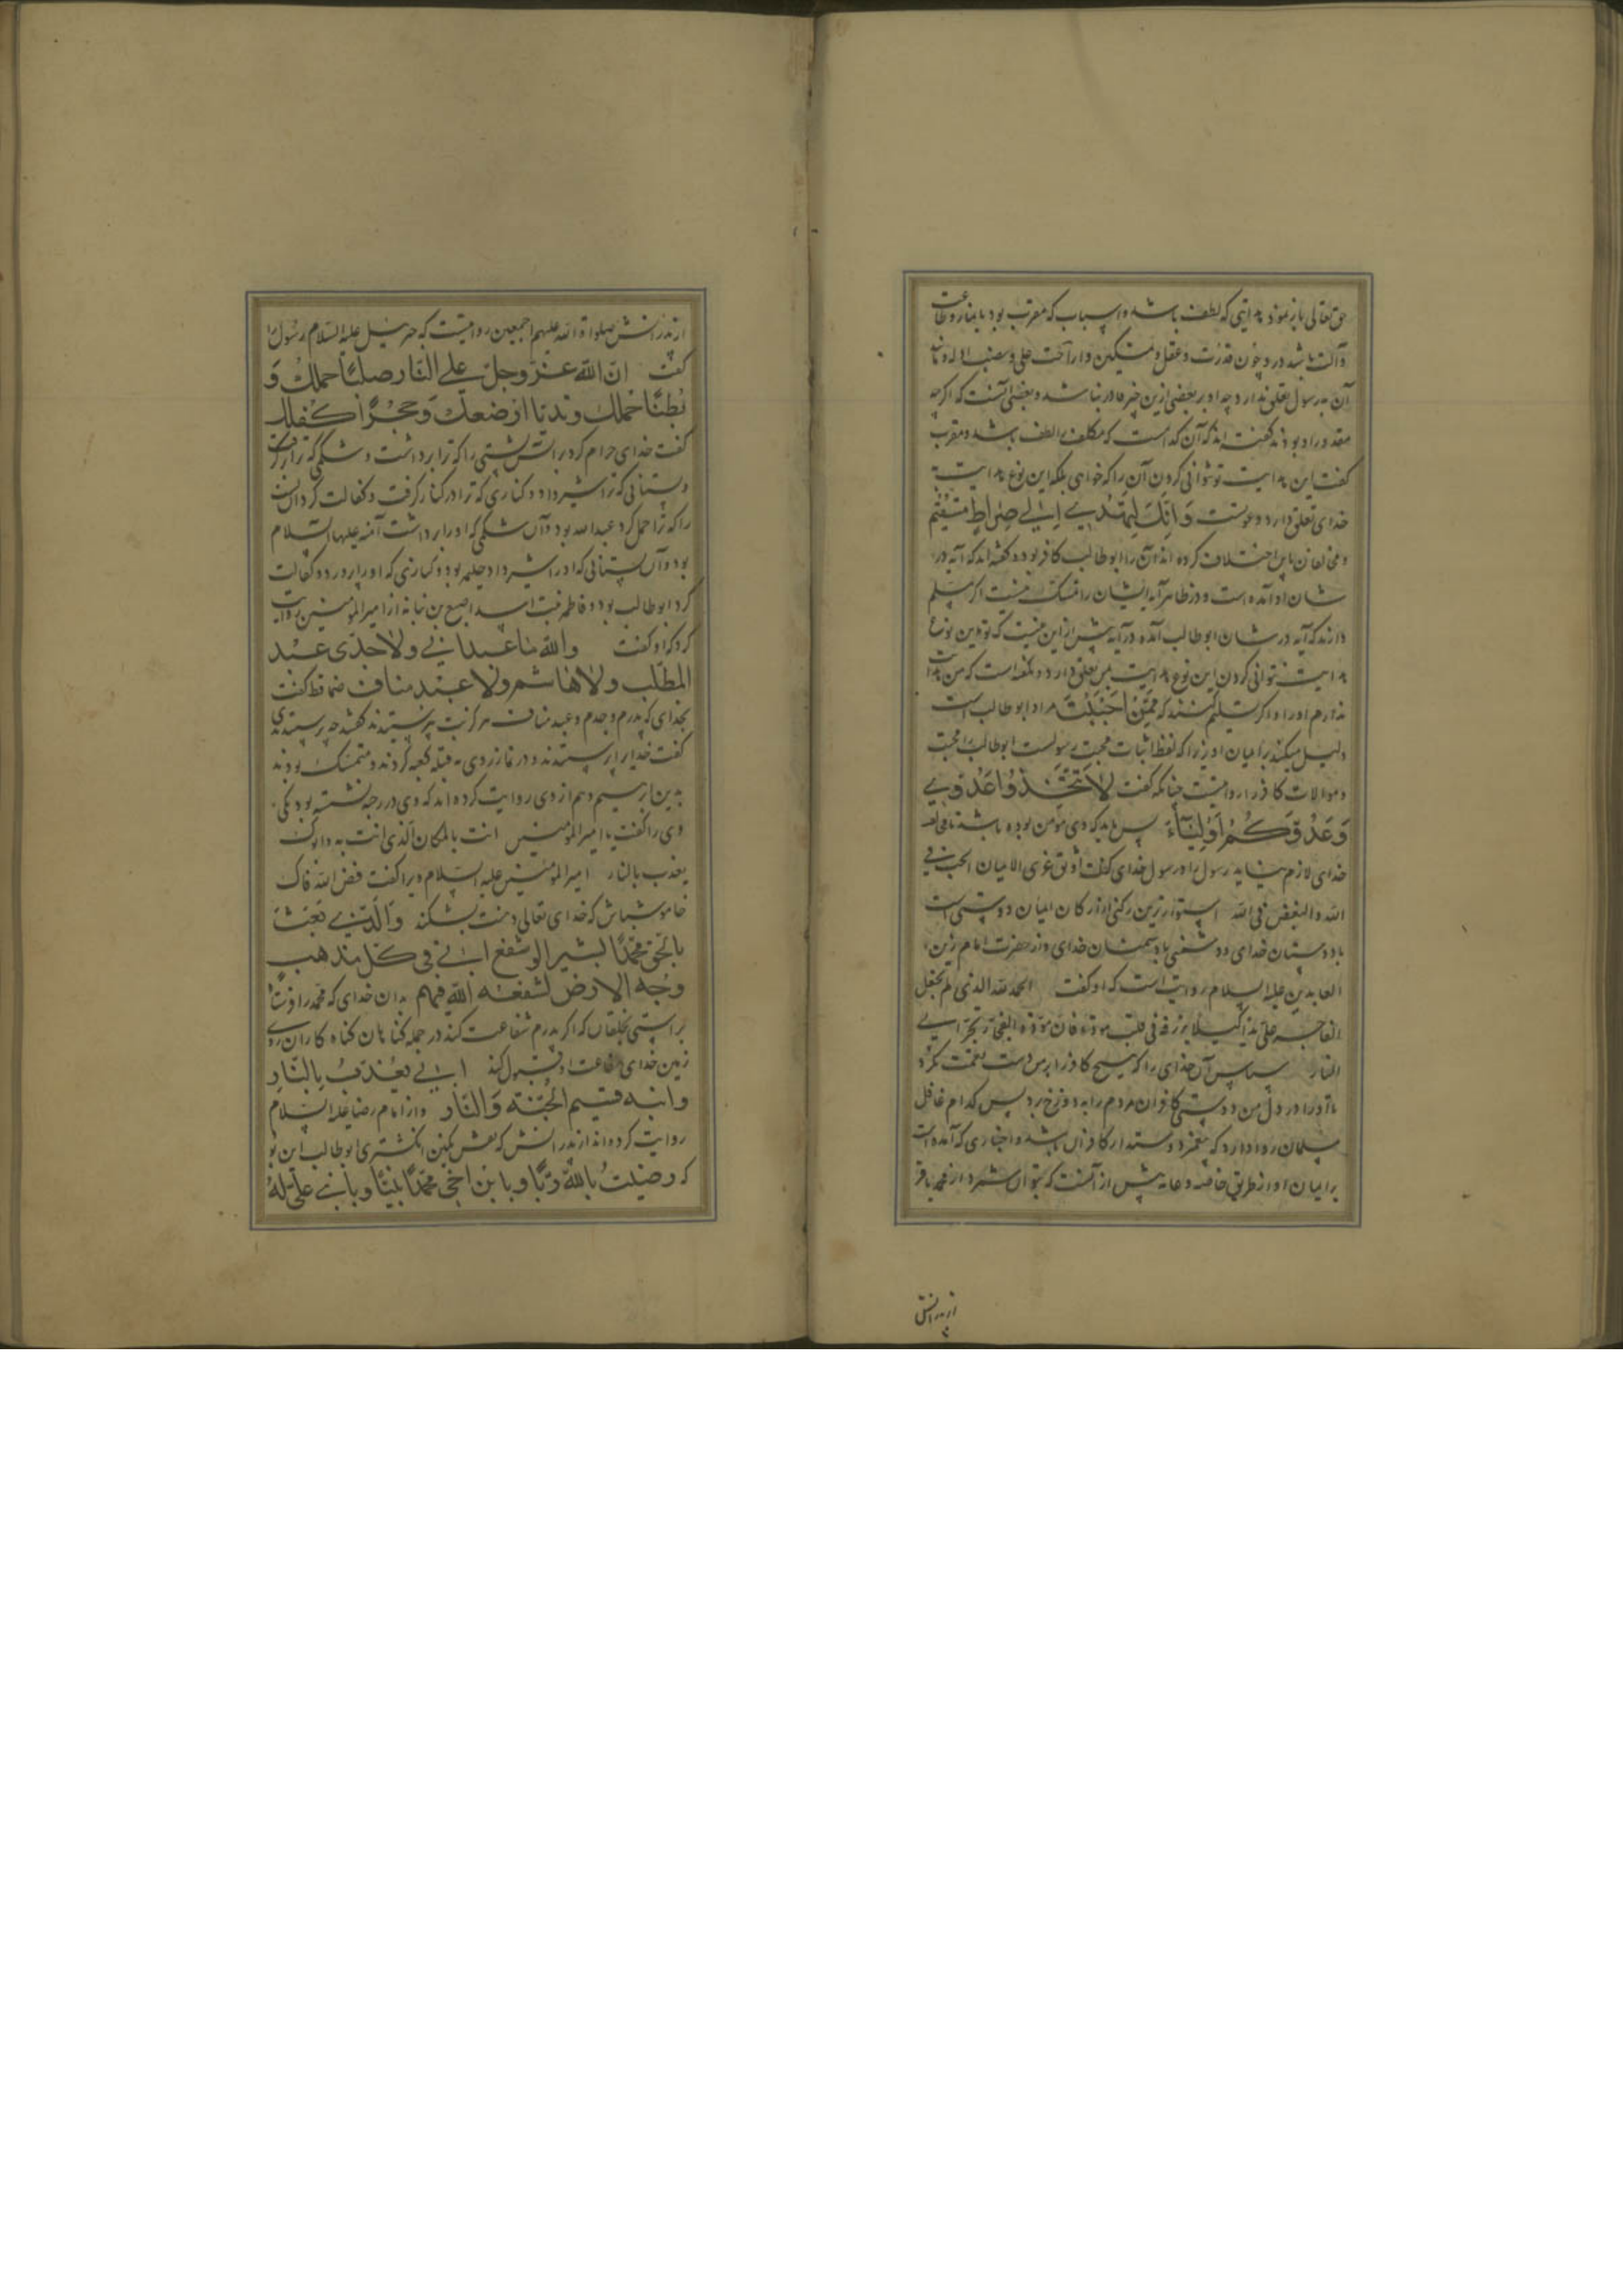 حق تعالی باز نمود هدایتی که لطف باشد و اسباب که مقرب بود با بنا و طاعت
و آلت باشد در و چون قدرت و عقل و تمکین و ازاحت علت و نصب ادله و
آن به رسول تعلق ندارد چه او بر بعضی ازین چیزها قادر نباشد و بعضی آنست که اگرچه
مقدور او بود نه گفته اند که آن کدامست که مکلف را لطف باشد و مقرب
گفت این هدایت تو نتوانی کردن آن را که خواهی بلکه این نوع هدایت به
خدای تعلق دارد و دعوتست وَاِنَّكَ لَتَهْدِي اِلٰي صِرَاطٍ مُسْتَقِيْم
و مخالفان ما اختلاف کرده اند آنان را که ابوطالب کافر بوده گفته اند که آیه در
شان او آمده است و در ظاهر آیه ایشان را متمسک نیست اگر مسلم
دارند که آیه در شان ابوطالب آمده در آیه بیش ازین نیست که تو این نوع
هدایت نتوانی کردن این نوع هدایت بمن تعلق دارد و نگفته است که من هدایت
ندارم او را و اگر تسلیم کنند که مَنْ اَحْبَبْتَ مراد ابوطالب است
دلیل میکند بر ایمان او زیرا که لفظ اثبات محبت رسولست ابوطالب را محبت
و موالات کافر را روا نیست چنانکه گفت لَا تَتَّخِذُوا عَدُوِّي
وَعَدُوَّكُمْ اَوْلِيَآءَ پس باید که وی مومن بوده باشد تا مخالفت
خدای لازم نیاید رسول را و رسول خدای گفت اوثق عری الایمان الحب فی
الله والبغض فی الله استوارترین رکنی از ارکان ایمان دوستی است
با دوستان خدای و دشمنی با دشمنان خدای و از حضرت امام زین
العابدین علیه السلام روایت است که او گفت الحمد لله الذی لم یجعل
لفاجر علیّ یدا کیلا یرزقه فی قلبی مودة فان مودة الفجّار تجرّ الی
النار سپاس آن خدای را که هیچ کافر را بر من دست نعمت نکرد
تا او را در دل من دوستی کافران مردم را به دوزخ برد پس کدام عاقل
مسلمان روا دارد که پیغمبر دوستدار کافران باشد و اخباری که آمده است
بر ایمان او از طریق خاصه و عامه بیش از آنست که بتوان شمرد از محمد باقر
از پدرانش
از پدرانش صلوات الله علیهم اجمعین روایتست که جبرئیل علیه السلام رسول را
گفت ان الله عزّ وجلّ حرّم علی النار صلباً حملك و
بطناً حملك وثدیاً ارضعك و حجراً کفلك
گفت خدای حرام کرد بر آتش پشتی را که ترا برداشت و شکمی که ترا برگرفت
و پستانی که ترا شیر داد و کناری که ترا در کنار گرفت و کفالت کرد آن پشت
را که ترا حمل کرد عبدالله بود و آن شکمی که او را برداشت آمنه علیها السلام
بود و آن پستانی که او را شیر داد حلیمه بود و کناری که او را پرورد و کفالت
کرد ابوطالب بود و فاطمه بنت اسد اصبغ بن نباته از امیرالمومنین روایت
کرد که او گفت والله ما عبد ابی ولا جدّی عبد
المطّلب ولا هاشم ولا عبد مناف صنما قط گفت
بخدای که پدرم و جدم و عبد مناف هرگز بت نپرستیدند گفتند چه پرستیدندی
گفت خدای را پرستیدند و در نماز روی به قبله کعبه کردند و متمسک بودند
بدین ابرهیم و هم از وی روایت کرده اند که وی در رحبه نشسته بود یکی
وی را گفت یا امیرالمومنین انت بالمکان الذی انت به و ابوک
یعذب بالنار امیرالمومنین علیه السلام ویرا گفت فضّ الله فاک
خاموش باش که خدای تعالی دهنت بشکند وَالَّذِي بَعَثَ
بالحق محمّداً بشیراً لو شفع ابی فی کلّ مذنب
وجه الارض لشفعه الله فیهم بدان خدای که محمد را فرستاد
براستی بخلقان که اگر پدرم شفاعت کند در جمله گناهان گناه کاران روی
زمین خدای شفاعت او قبول کند ابی یعذّب بالنّار
وابنه قسیم الجنّة والنّار و از امام رضا علیه السلام
روایت کرده اند از پدرانش که نقش نگین انگشتری ابوطالب این بود
که رضیت بالله ربّاً و بابن اخی محمّداً نبیّاً و بابنی علیّ لهُ